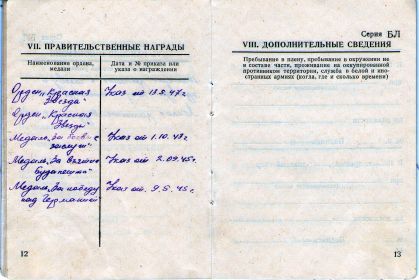 VII. ПРАВИТЕЛЬСТВЕННЫЕ НАГРАДЫ
Наименование ордена, медали
Дата и № приказа или указа о награждении
Орден „Красная Звезда"
Указ от 13.5.47г.
Орден „Красная Звезда"
Медаль „За боевые заслуги"
Указ от 1.10.43г
Медаль „За взятие Будапешта"
Указ от 2.09.45г.
Медаль „За победу над Германией
Указ от 9.5.45г.
12
Серия БЛ
VIII. ДОПОЛНИТЕЛЬНЫЕ СВЕДЕНИЯ
Пребывание в плену, пребывание в окружении не
в составе части, проживание на оккупированной
противником территории, служба в белой и ино-
странных армиях (когда, где и сколько времени)
13